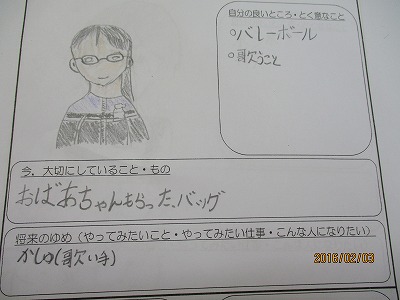 自分の良いところ・とく意なこと
○バレーボール
○歌うこと
今、大切にしていること・もの
おばあちゃんもらった、バッグ
将来のゆめ（やってみたいこと・やってみたい仕事・こんな人になりたい）
かしゅ(歌い手)
2016/02/03